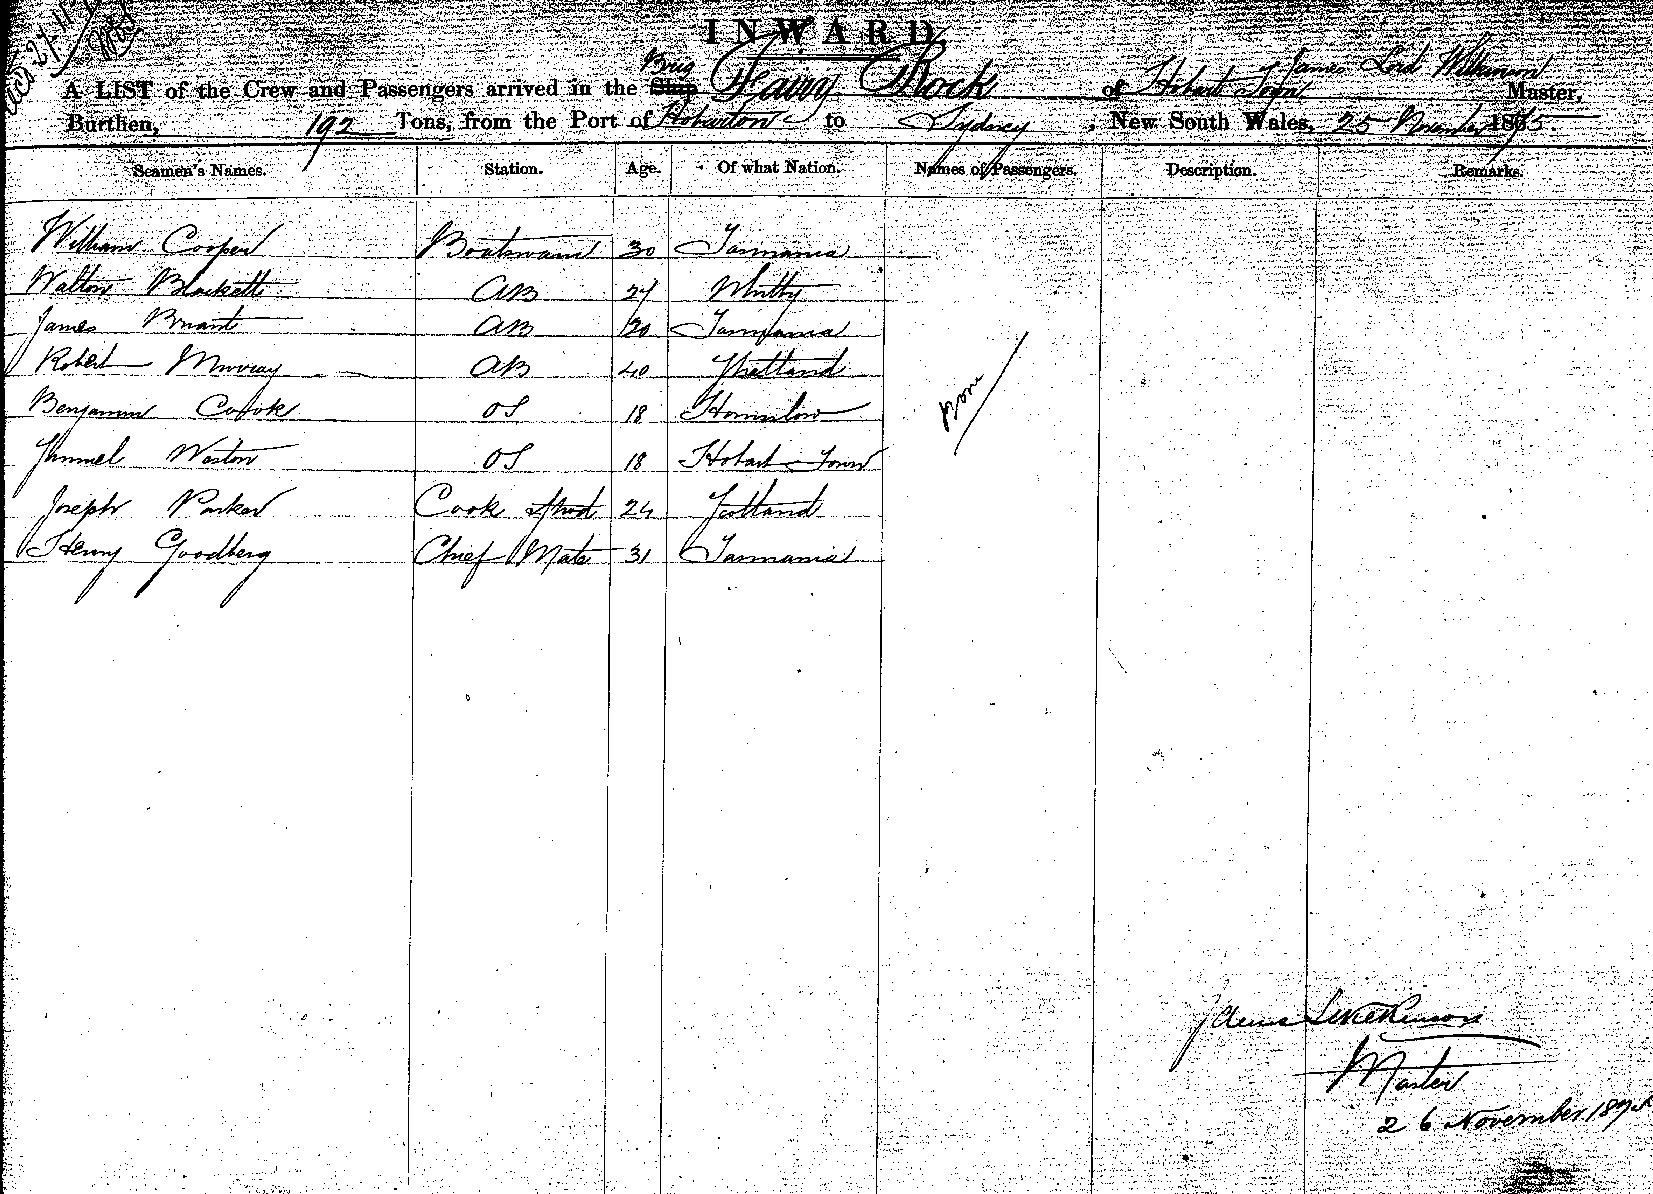 INWARD
A LIST of the Crew and Passengers arrived in the Ship Brig Fairy Rock of Hobart Town James Lord Wilkinson Master,
Burthen, 192 Tons, from the Port of Hobarton to Sydney, New South Wales, 25 November 1875.
Seamen's Names. Station. Age. Of what Nation. Names of Passengers. Description. Remarks.
William Cooper Boatswain 30 Tasmania
Walton Blackett AB 24 Whitby
James Bryant AB 20 Tasmania
Robert Murray AB 40 Shetland
Benjamin Coook OS 18 Hounslow
Samuel Weston OS 18 Hobart Town
Joseph Parker Cook & Stwd 24 Scotland
Henry Goodberg Chief Mate 31 Tasmania
None
James L Wilkinson
Master
26 November 187